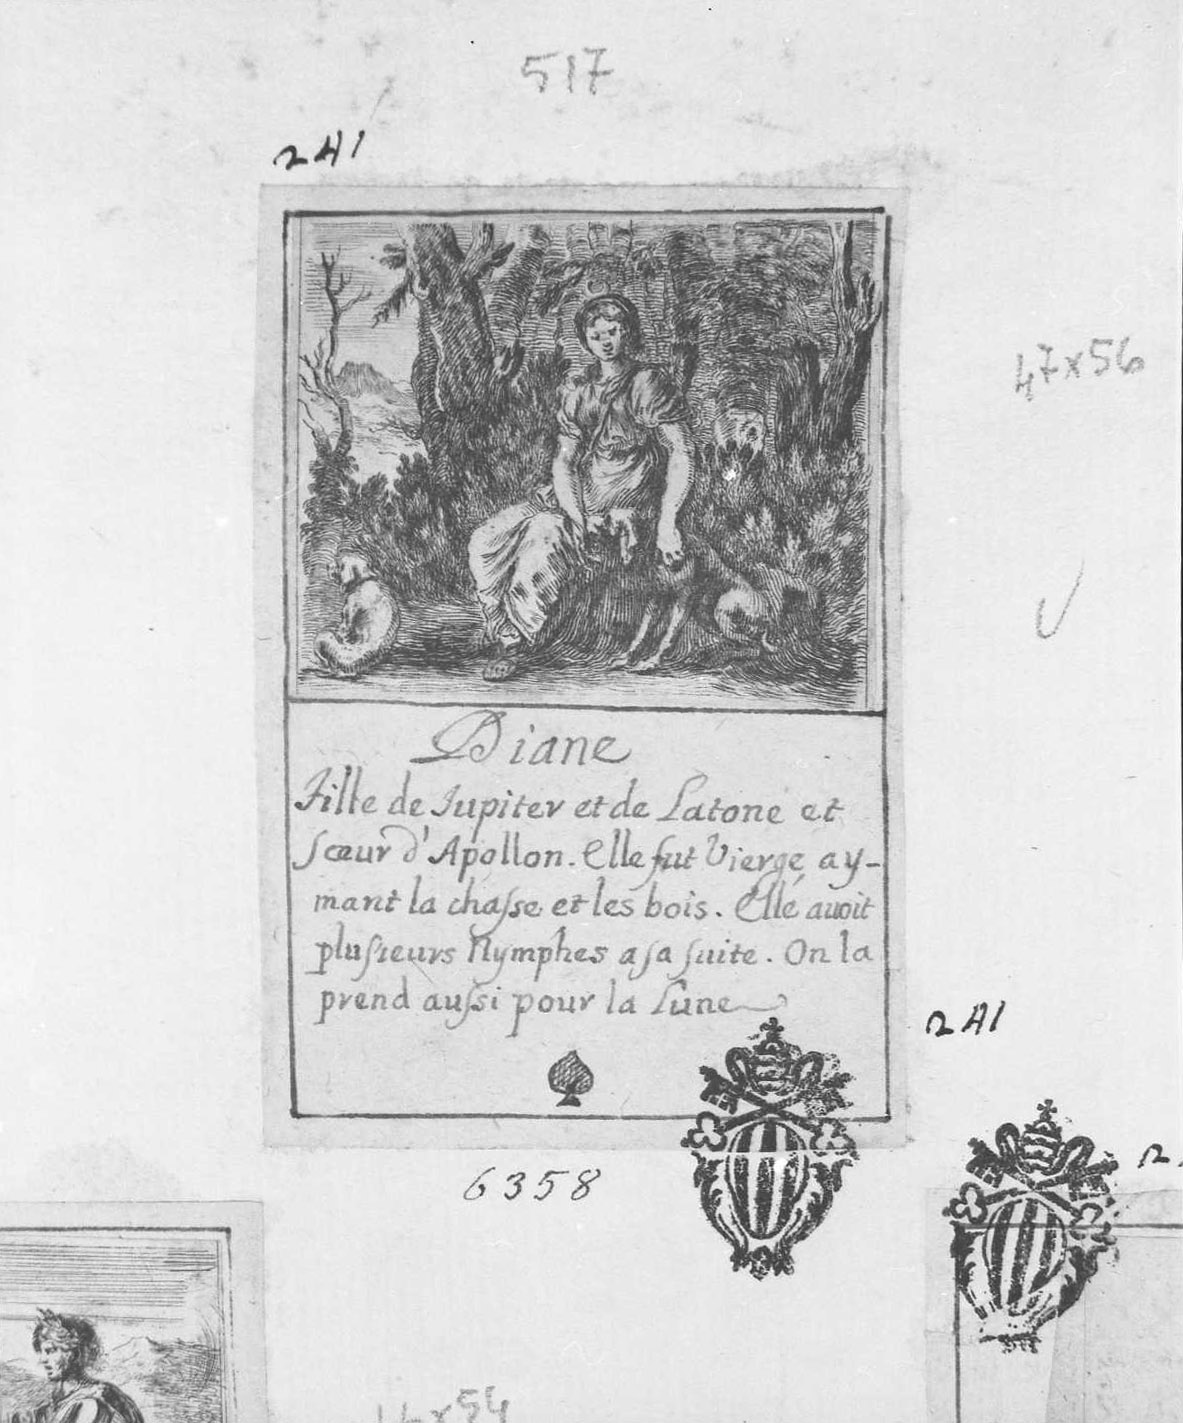 517
2A1
47x56
Diane
Fille de Jupiter et de Latone et
sœur d'Apollon. Elle fut Vierge ay-
mant la chasse et les bois. Elle avoit
plusieurs Nymphes a sa suite. On la
prend aussi pour la Lune
2A1
6358